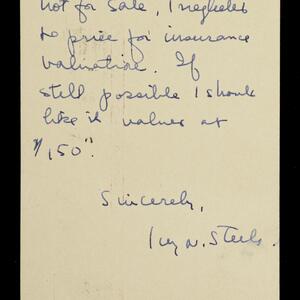 not for sale, I neglected
to price for insurance
valuation. If
still possible I should
like it valued at
$150⁰⁰.
Sincerely,
N. Steele.